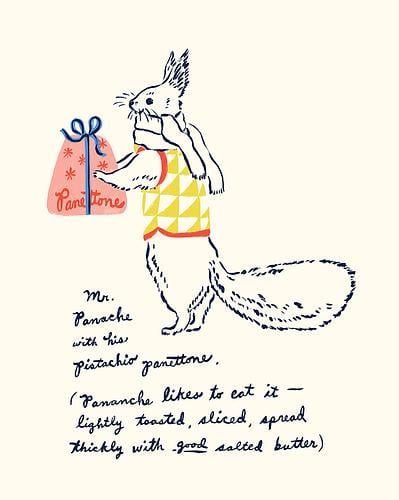 Panettone
Mr.
Panache
with his
pistachio panettone.
(Pananche likes to eat it —
lightly toasted, sliced, spread
thickly with good salted butter)